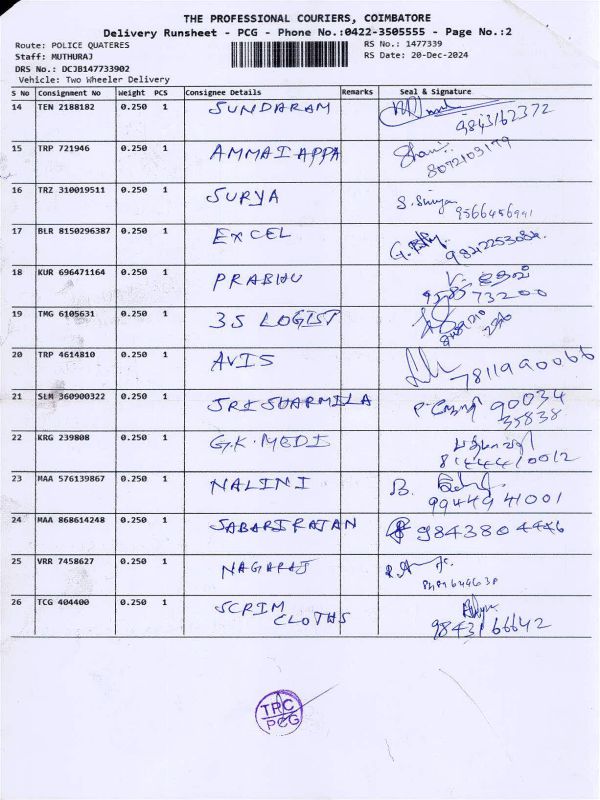 THE PROFESSIONAL COURIERS, COIMBATORE
Delivery Runsheet - PCG - Phone No.:0422-3505555 - Page No.:2
Route: POLICE QUATERES RS No.: 1477339
Staff: MUTHURAJ RS Date: 20-Dec-2024
DRS No.: DCJB147733902
Vehicle: Two Wheeler Delivery
S No Consignment No Weight PCS Consignee Details Remarks Seal & Signature
14 TEN 2188182 0.250 1 SUNDARAM
9843162372
15 TRP 721946 0.250 1 AMMAIAPPA
8072103179
16 TRZ 310019511 0.250 1 SURYA S. Surya
17 BLR 8150296387 0.250 1 EXCEL
18 KUR 696471164 0.250 1 PRABHU
73200
19 TMG 6105631 0.250 1 3S LOGIST
20 TRP 4614810 0.250 1 AVIS
7811990066
21 SLM 360900322 0.250 1 SRI SHARMILA 90034
35838
22 KRG 239808 0.250 1 G.K. MEDI
23 MAA 576139867 0.250 1 NALINI B.
9944941001
24 MAA 868614248 0.250 1 SABARIRAJAN 9843804446
25 VRR 7458627 0.250 1 NAGARAJ
26 TCG 404400 0.250 1 SCRIM
CLOTHS
9843166642
TPC
PCG